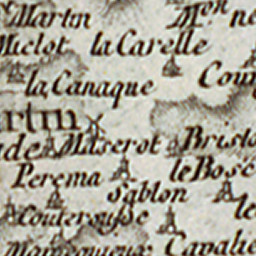 Martin
Mon ne
Miclot la Carelle
la Canaque Cour
artin
ade Maserot Bristo
Perema le Bosc
Sablon
le
Couterousse
Cavalie